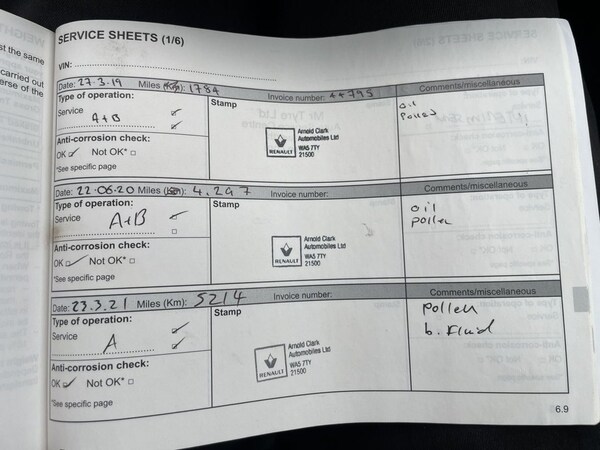 SERVICE SHEETS (1/6)
VIN:
Date: 27.3.19 Miles (Km): 1784 Invoice number: 44795 Comments/miscellaneous
Type of operation: Stamp oil
Service A+B pollen
Anti-corrosion check: RENAULT Arnold Clark
OK Not OK* Automobiles Ltd
*See specific page WA5 7TY
21500
Date: 22.06.20 Miles (km): 4,297 Invoice number: Comments/miscellaneous
Type of operation: Stamp oil
Service A+B pollen
Anti-corrosion check: RENAULT Arnold Clark
OK Not OK* Automobiles Ltd
*See specific page WA5 7TY
21500
Date: 23.3.21 Miles (Km): 5214 Invoice number: Comments/miscellaneous
Type of operation: Stamp pollen
Service A b. fluid
Anti-corrosion check: RENAULT Arnold Clark
OK Not OK* Automobiles Ltd
*See specific page WA5 7TY
21500
6.9
st the same
carried out
erse of the